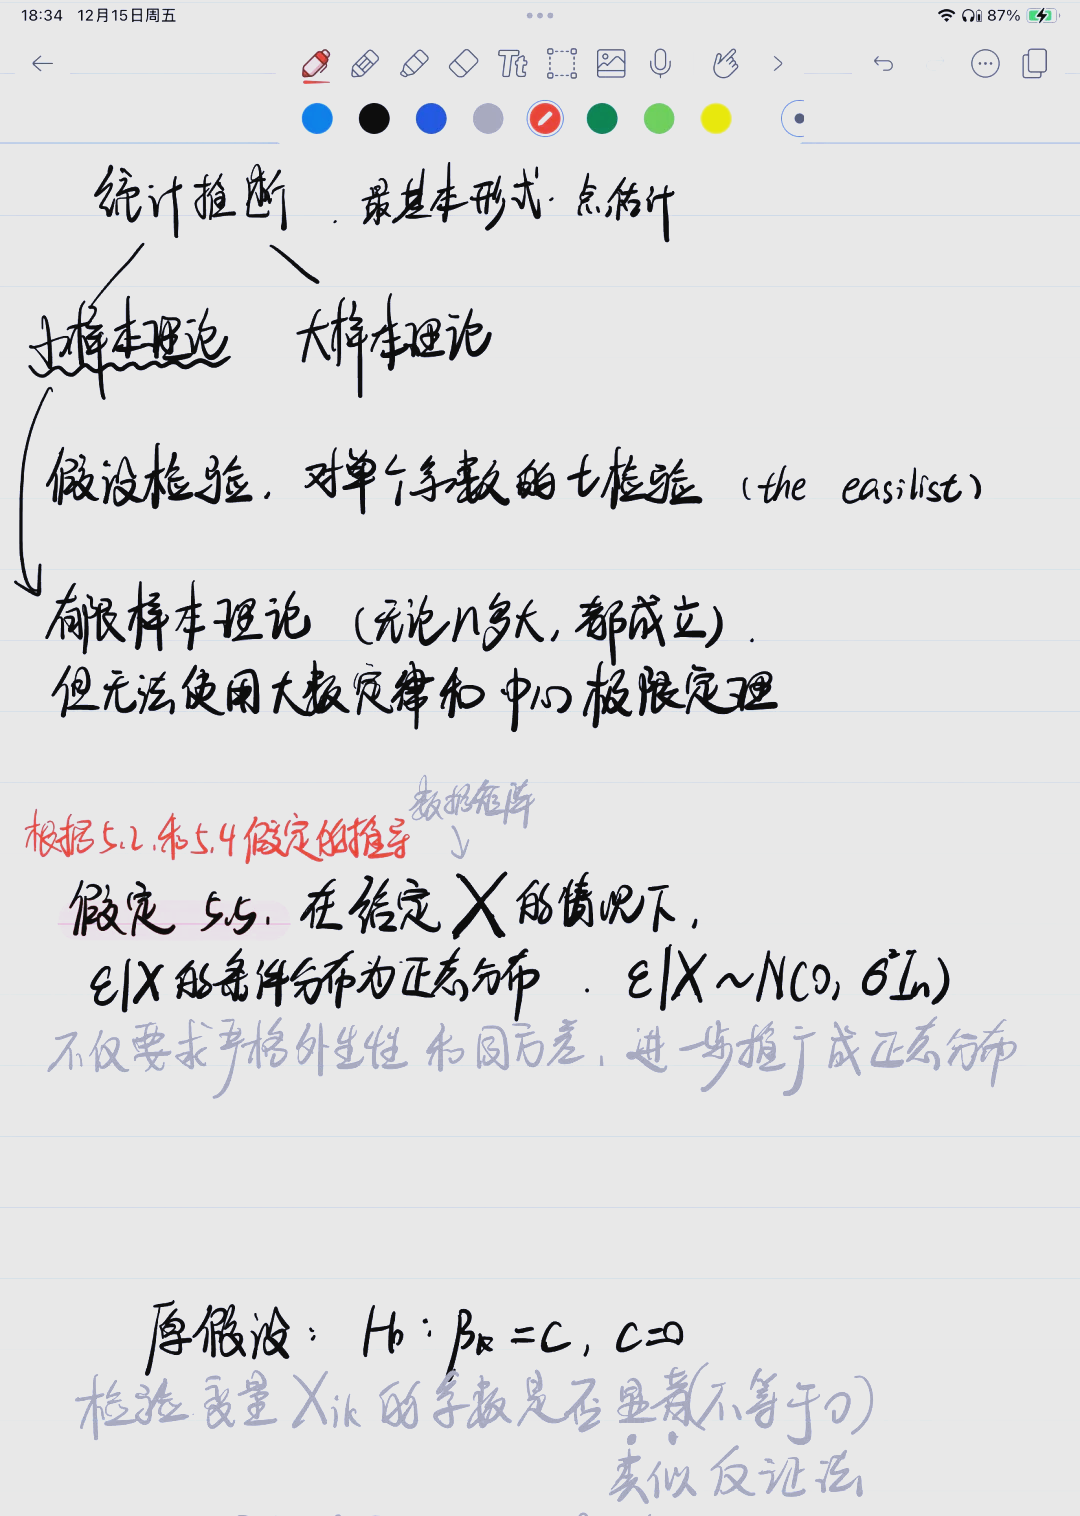 18:34 12月15日周五
87%
Tt
统计推断 . 最基本形式. 点估计
小样本理论 大样本理论
假设检验, 对单个系数的t检验 (the easilist)
有限样本理论 (无论n多大, 都成立).
但无法使用大数定律和中心极限定理
数据矩阵
根据5.2.和5.4假定的推导
假定 5.5. 在给定X的情况下,
ε|X的条件分布为正态分布 . ε|X~N(0, σ²In)
不仅要求严格外生性和同方差, 进一步推广成正态分布
原假设: H0: βk=C, C=0
检验变量Xik的系数是否显著(不等于0)
类似反证法